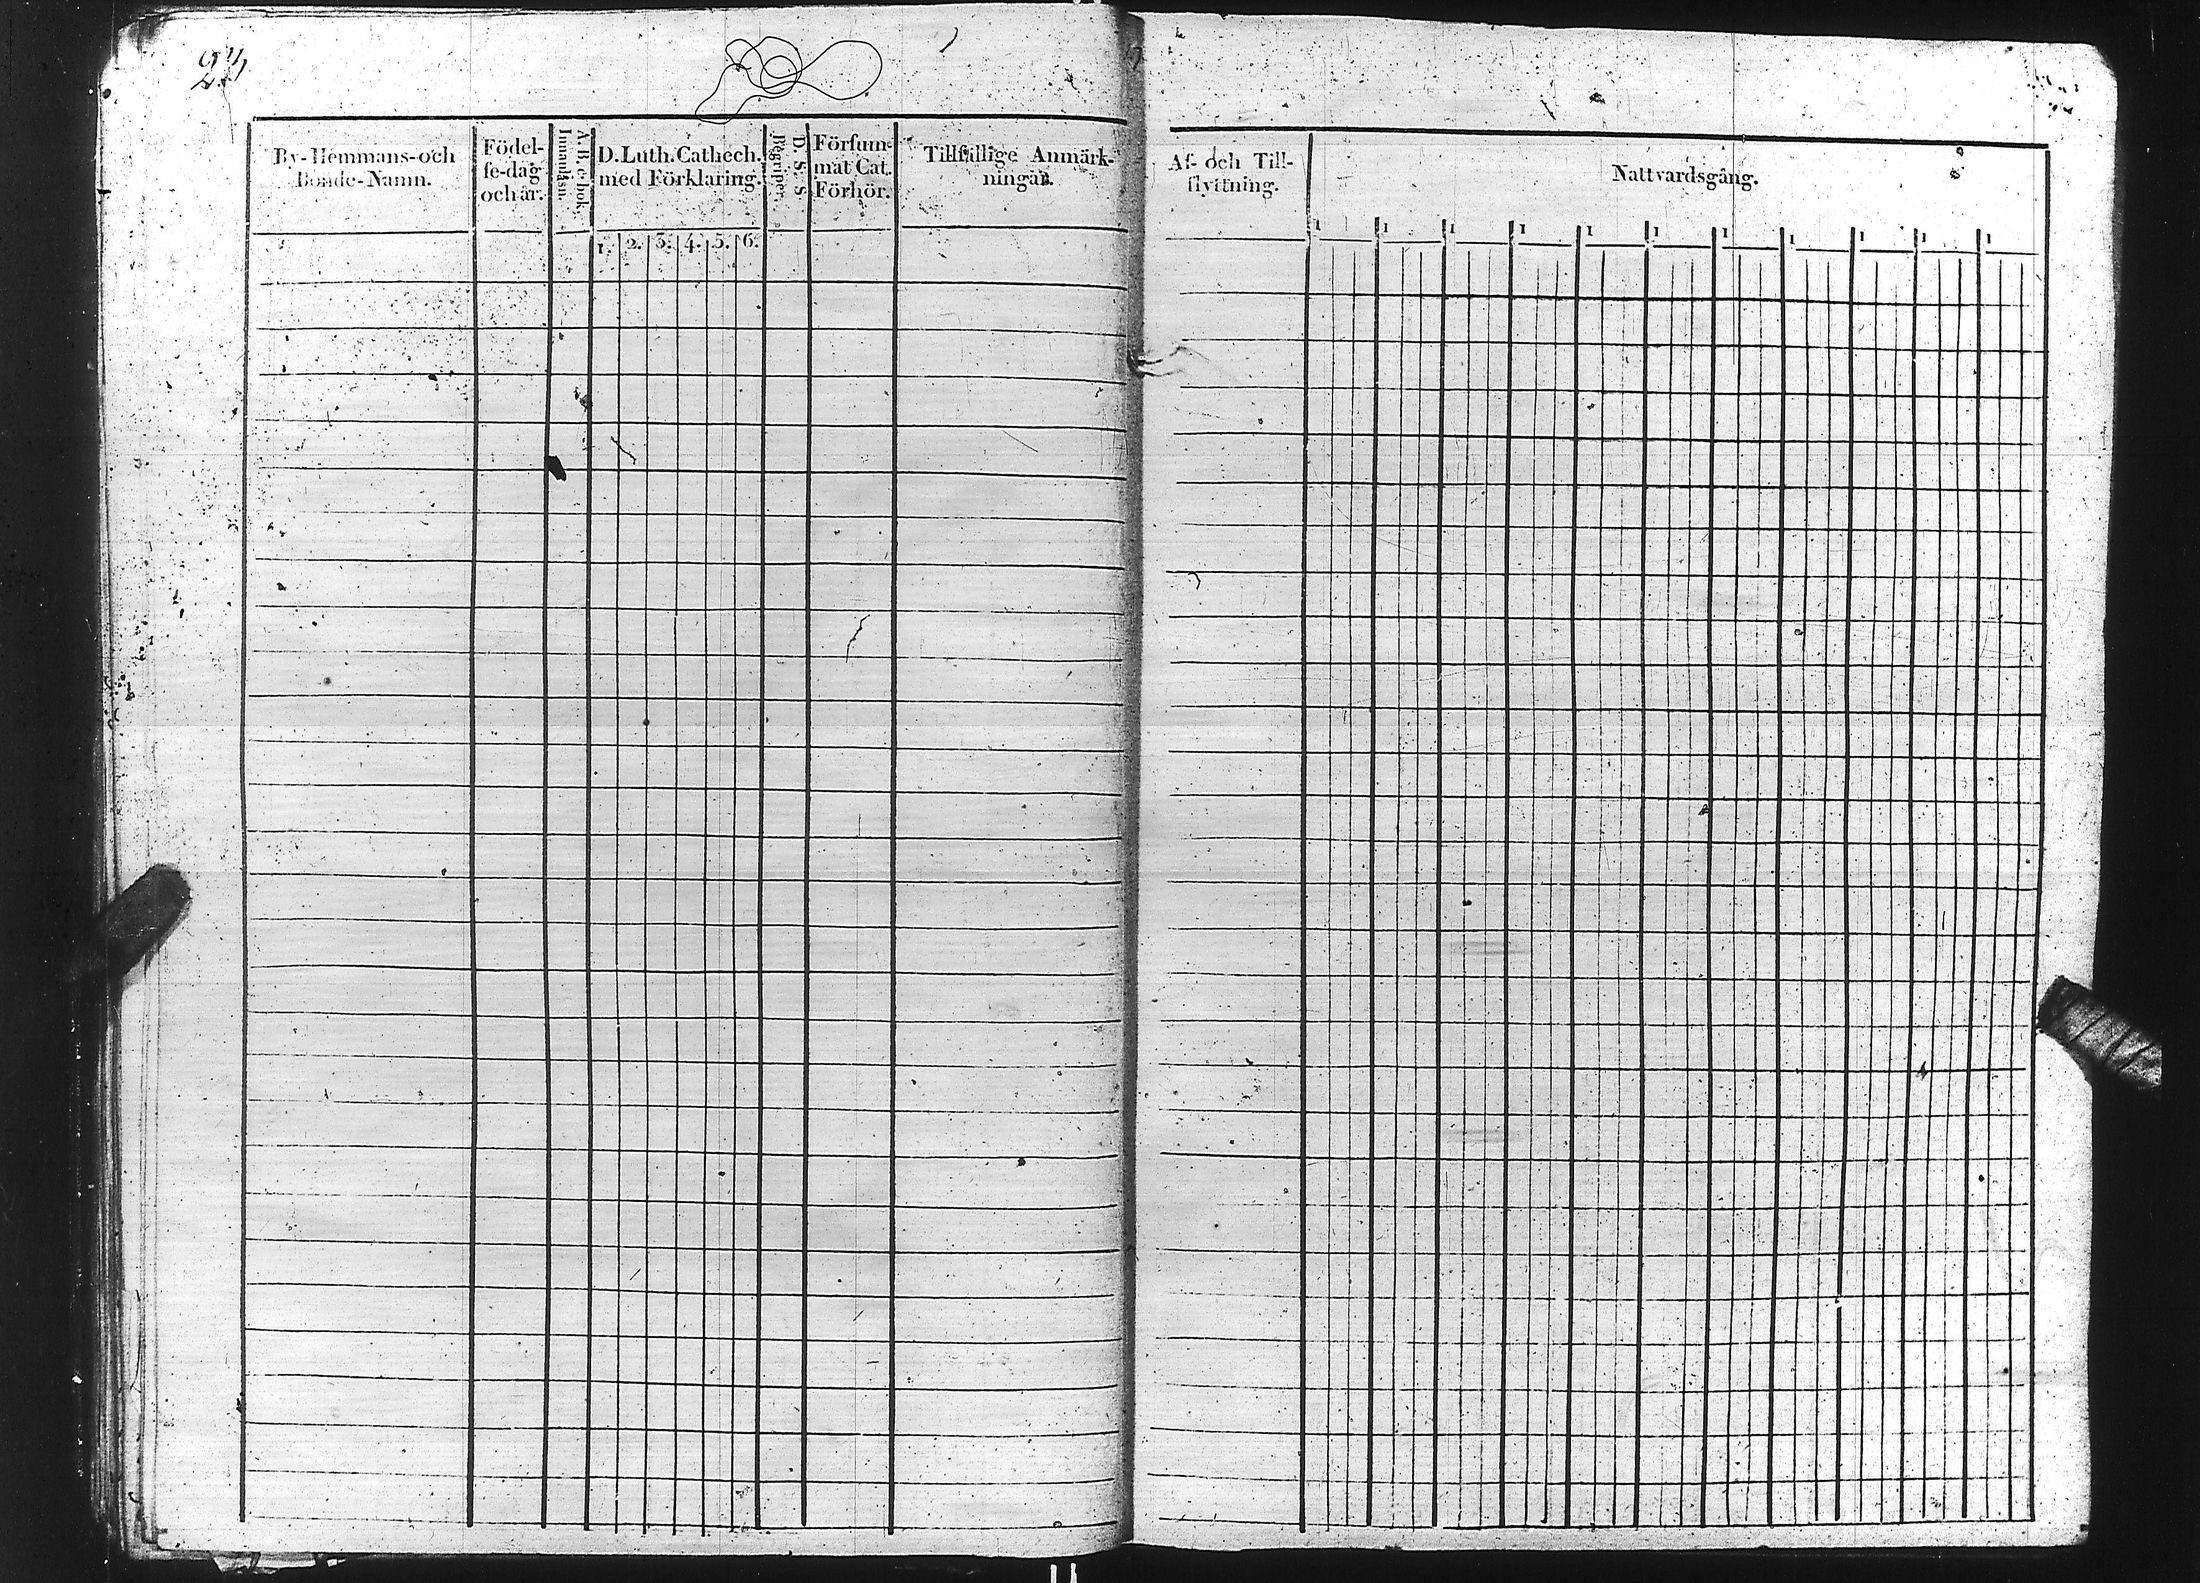 By-Hemmans-och
Bonde-Namn.
Födel-
se-dag
och år.
A B c bok,
Innanläsn.
D. Luth. Cathech.
med Förklaring.
1. 2. 3. 4. 5. 6.
D. S. S.
Begriper.
Försum-
mat Cat.
Förhör.
Tillfällige Anmärk-
ningar.
Af- och Till-
flyttning.
Nattvardsgång.
1 1 1 1 1 1 1 1 1 1 1